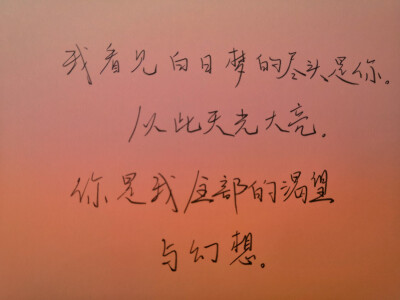 我看见白日梦的尽头是你。
从此天光大亮。
你是我全部的渴望
与幻想。